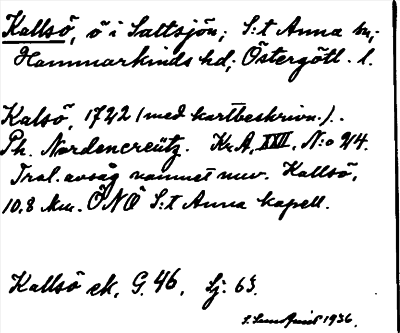 Kallsö, ö i Saltsjön; S:t Anna sn;
Hammarkinds hd; Östergötl. l.
Kalsö, 1722 (med kartbeskrivn.).
Ph. Nordencreütz. Kr.A, XXII, N:o 2/4.
Trol. avsåg namnet nuv. Kallsö,
10,8 km. ÖNÖ S:t Anna kapell.
Kallsö ek, G. 46, Sj: 63.
S. Sundqvist 1936.